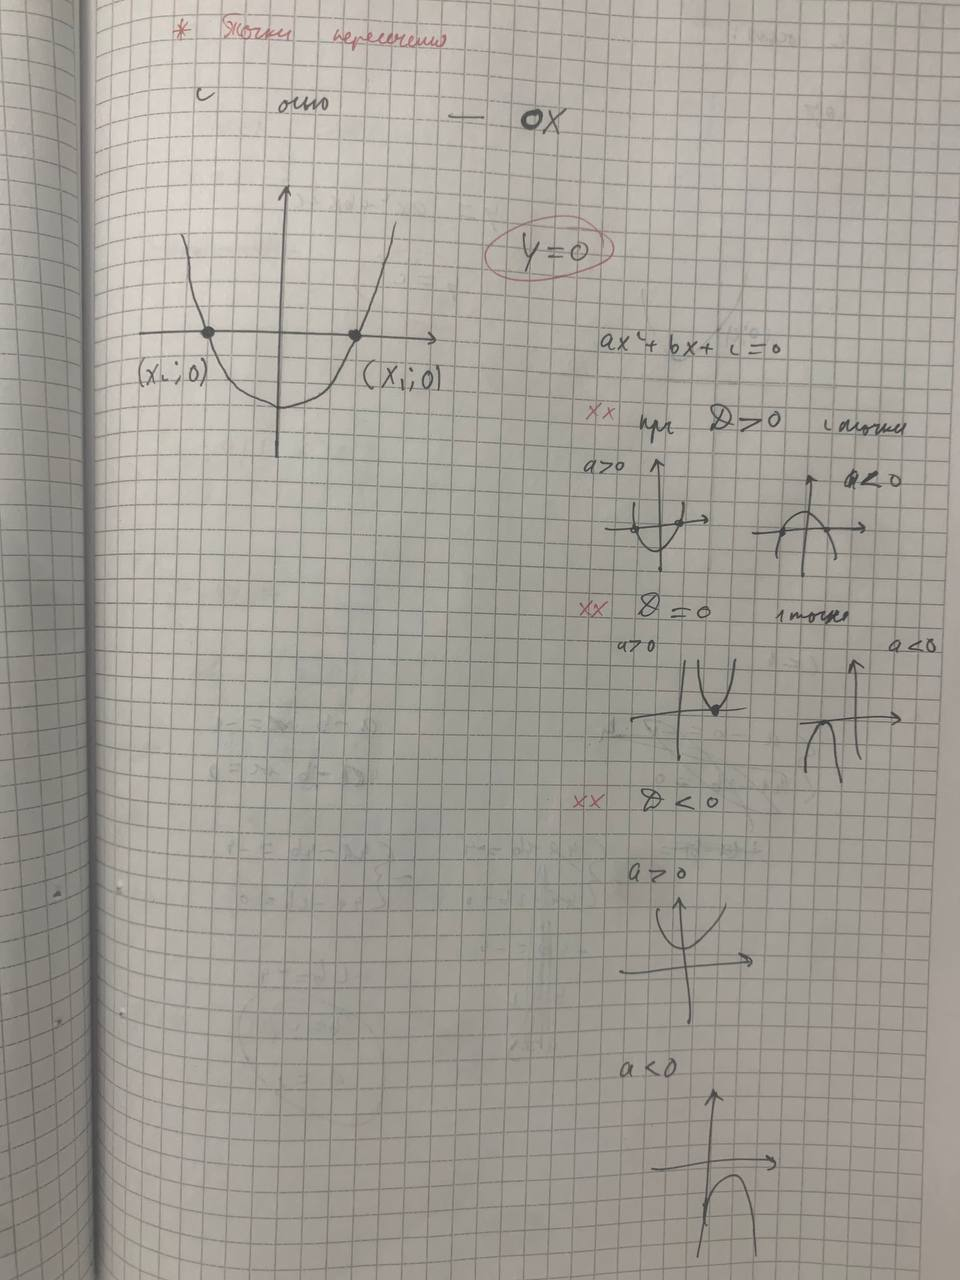 * Точки пересечения
с осью — OX
y=0
(x₂;0) (x₁;0)
ax²+bx+c=0
xx при D>0 2 точки
a>0 a<0
xx D=0 1 точка
a>0 a<0
xx D<0
a>0
a<0